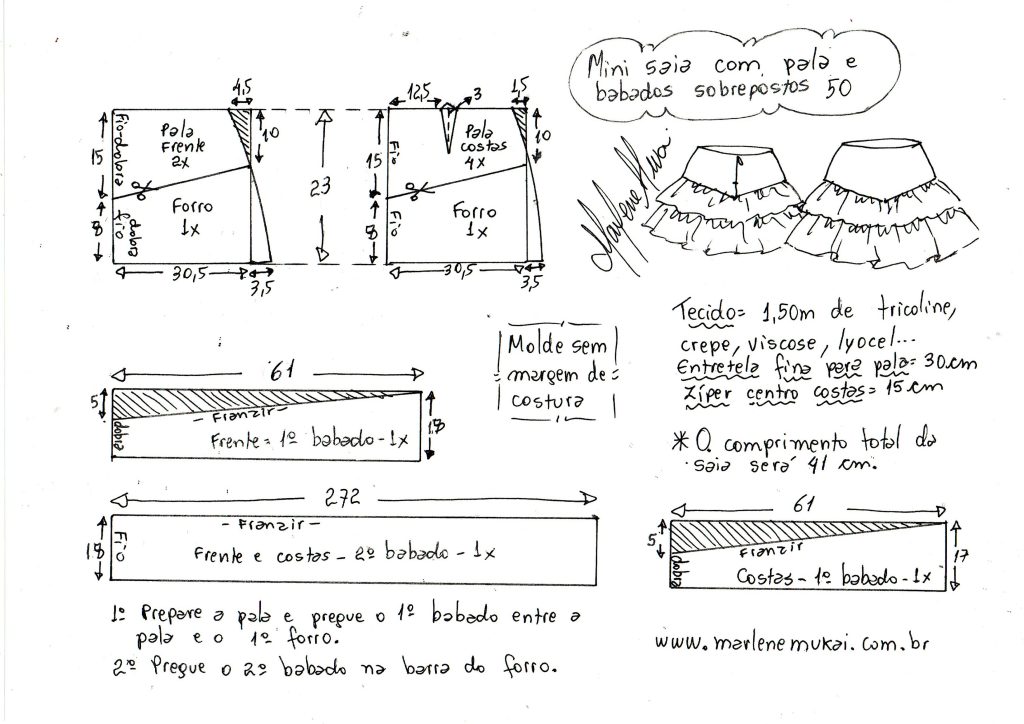 Mini saia com pala e
babados sobrepostos 50
Marlene Mukai
4,5
10
15
8
Fio-dobra
Pala
Frente
2x
Forro
1x
dobra
fio
30,5
3,5
23
12,5
3
1,5
10
15
8
Fio
Pala
costas
4x
Forro
1x
Fio
30,5
3,5
Tecido= 1,50m de tricoline,
crepe, viscose, lyocel...
Entretela fina para pala= 30.cm
Zíper centro costas= 15 cm
* O comprimento total da
saia será 41 cm.
Molde sem
margem de
costura
61
5
- Franzir -
dobra
Frente= 1º babado - 1x
18
272
- Franzir -
18
Fio
Frente e costas - 2º babado - 1x
61
5
Franzir
dobra
Costas - 1º babado - 1x
17
1º Prepare a pala e pregue o 1º babado entre a
pala e o 1º forro.
2º Pregue o 2º babado na barra do forro.
www.marlenemukai.com.br